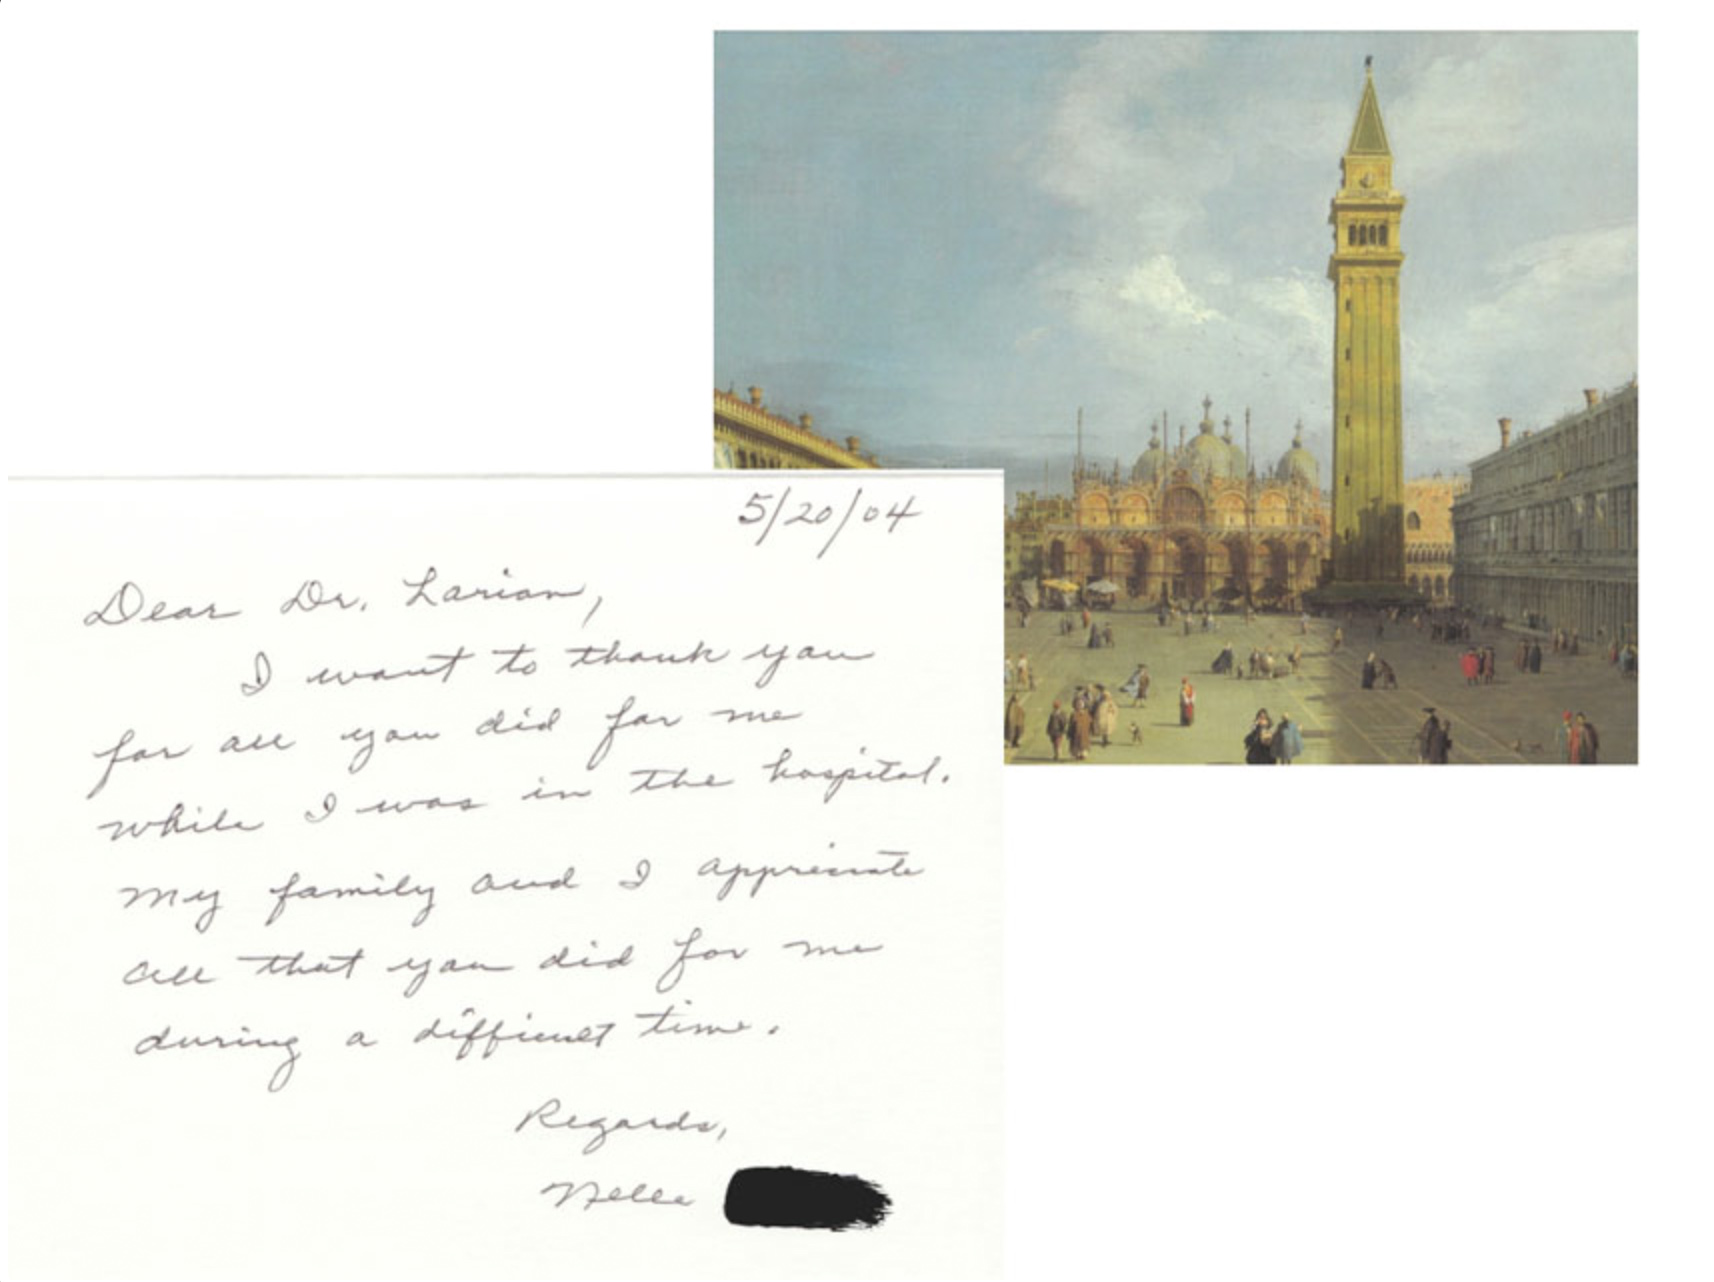 5/20/04
Dear Dr. Larian,
I want to thank you
for all you did for me
while I was in the hospital.
My family and I appreciate
all that you did for me
during a difficult time.
Regards,
Nelle